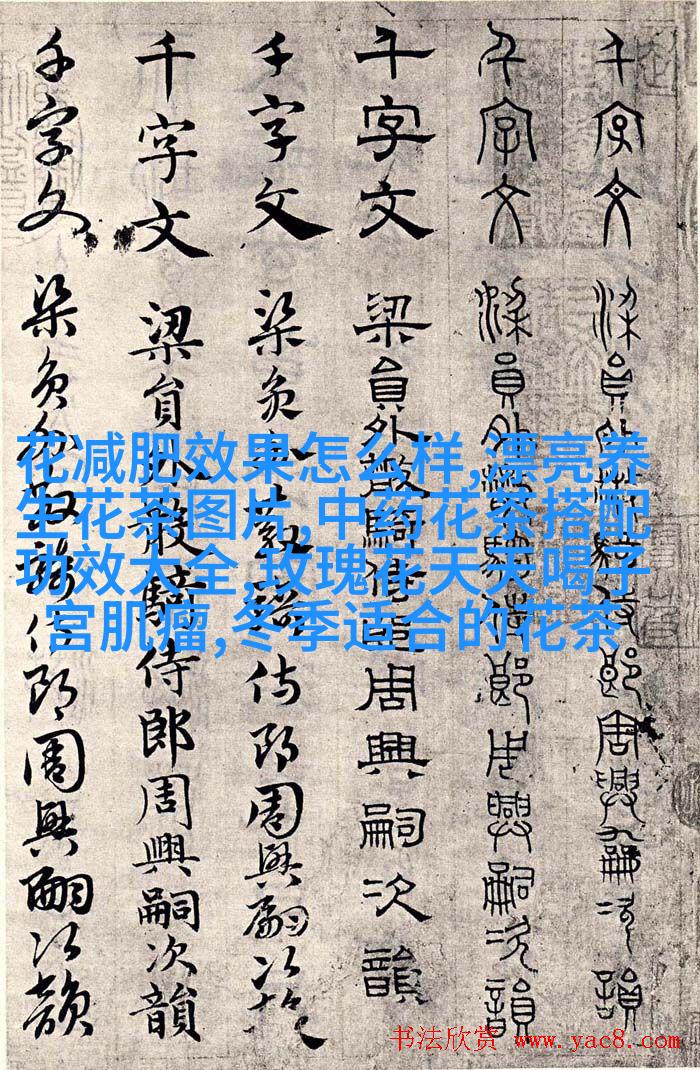 千字文 梁員外散騎侍郎周興嗣次韻
千字文 梁員外散騎侍郎周興嗣次韻
千字文 梁員外散騎侍郎周興嗣次韻
千字文 梁員外散騎侍郎周興嗣次韻
千字文 梁員外散騎侍郎周興嗣次韻
千字文 梁員外散騎侍郎周興嗣次韻
花减肥效果怎么样,漂亮养
生花茶图片,中药花茶搭配
功效大全,玫瑰花天天喝子
宫肌瘤,冬季适合的花茶
书法欣赏 www.yac8.com